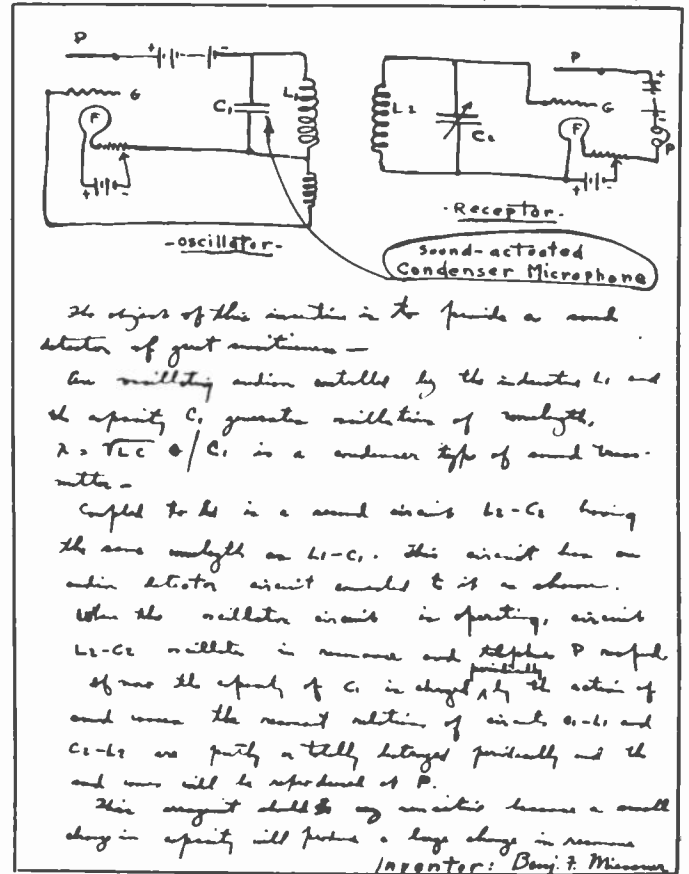 P
+ -
G
F
+ -
C1
L1
-oscillator-
L2
C2
P
G
F
+
-
P
+ -
-Receptor-
Sound-actuated
Condenser Microphone
The object of this invention is to provide a sound
detector of great sensitiveness —
An oscillating audion controlled by the inductance L1 and
the capacity C1 generates oscillations of wavelength,
λ = √LC / C1 is a condenser type of sound trans-
mitter —
Coupled to is a second circuit L2-C2 having
the same wavelength as L1-C1. This circuit has an
audion detector circuit connected to it as shown.
When the oscillator circuit is operating, circuit
L2-C2 oscillates in resonance and telephone P
periodically
If now the capacity of C1 is changed ^ by the action of
sound waves the resonant relations of circuits C1-L1 and
C2-L2 are partly or totally destroyed periodically and the
sound waves will be reproduced at P.
This should be very sensitive because a small
change in capacity will produce a large change in resonance
Inventor: Benj. F. Miessner